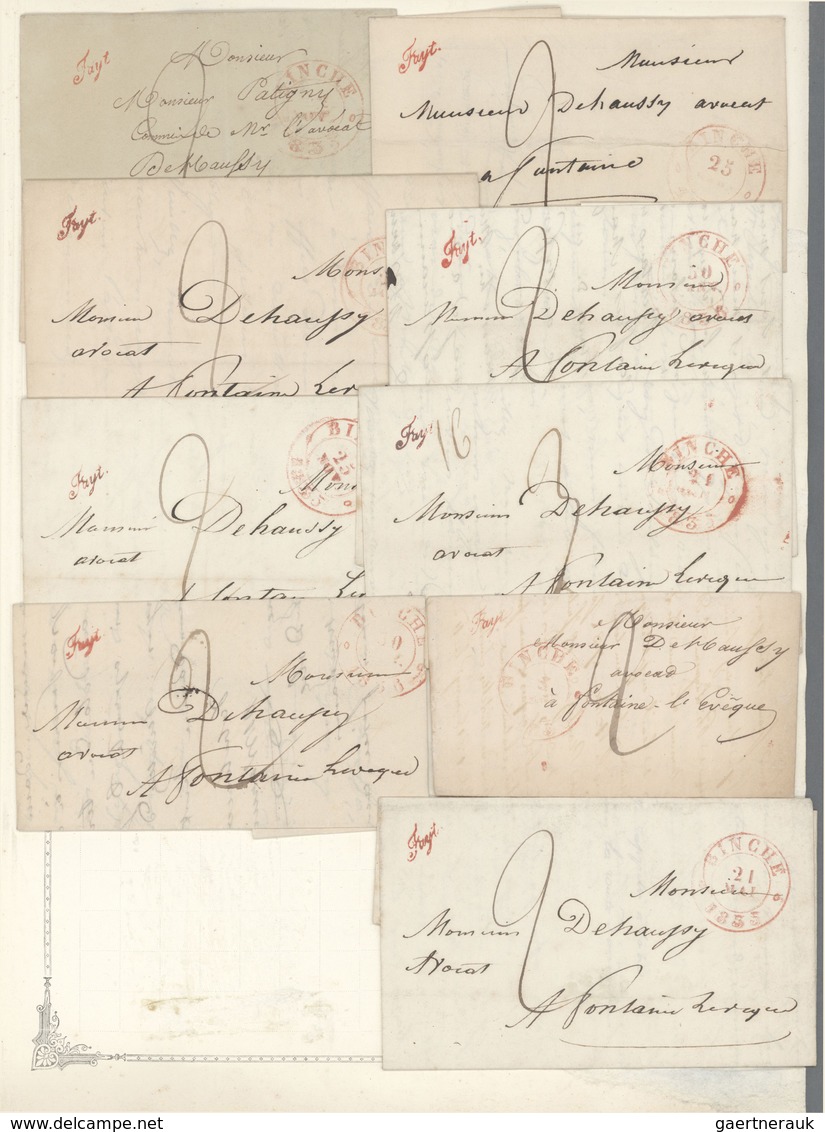 Fayt
Monsieur
Monsieur Patigny
Commis de Mr. l'avocat
DeHaussy
BINCHE
Fayt.
Monsieur
Monsieur Dehaussy avocat
a Fontaine
BINCHE
25
Fayt.
Mons
Monsieur Dehaussy
avocat
A Fontaine Leve
BINCHE
Fayt.
Monsieur
Monsieur Dehaussy avocat
A Fontaine Leveque
BINCHE
30
Fayt.
Monsieur Dehaussy
avocat
BINCHE
25
NOV
Fayt
16
Monsieur
Monsieur Dehaussy
avocat
A Fontaine Leveque
BINCHE
Fayt.
Monsieur
Monsieur Dehaussy
avocat
A Fontaine Leveque
BINCHE
Fayt
Monsieur
Monsieur DeHaussy
avocad
à Fontaine-l'Evêque
BINCHE
Fayt.
2
Monsieur
Monsieur Dehaussy
Avocat
A Fontaine Leveque
BINCHE
21
MAI
1835
www.delcampe.net
gaertnerauk